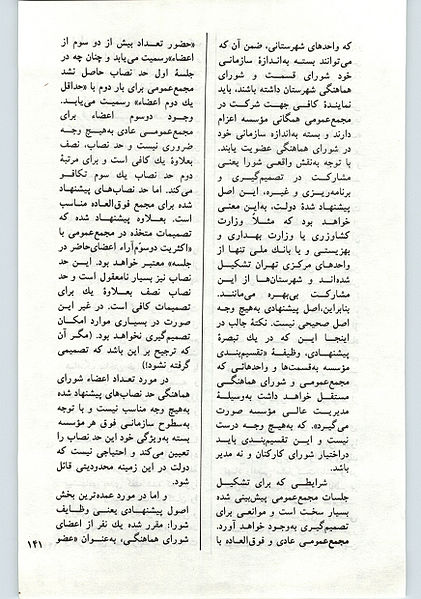 که واحدهای شهرستانی، ضمن آن که
می‌توانند بسته به‌اندازهٔ سازمانی
خود شورای قسمت و شورای
هماهنگی شهرستان داشته باشند، باید
نمایندهٔ کافی جهت شرکت در
مجمع‌عمومی همگانی مؤسسه اعزام
دارند و بسته به‌اندازه سازمانی خود
در شورای هماهنگی عضویت یابند.
با توجه به‌نقش واقعی شورا یعنی
مشارکت در تصمیم‌گیری و
برنامه‌ریزی و غیره، این اصل
پیشنهاد شدهٔ دولت، به‌این معنی
خواهد بود که مثلاً وزارت
کشاورزی یا وزارت بهداری و
بهزیستی و یا بانك ملی تنها از
واحدهای مرکزی تهران تشکیل
شده‌اند و شهرستان‌ها از این
مشارکت بی‌بهره می‌مانند.
بنابراین،اصل پیشنهادی به‌هیچ وجه
اصل صحیحی نیست. نکتهٔ جالب در
اینجا این که در یك تبصرهٔ
پیشنهادی، وظیفهٔ «تقسیم‌بندی
مؤسسه به‌قسمت‌ها و واحدهائی که
مجمع‌عمومی و شورای هماهنگی
مستقل خواهد داشت به‌وسیلهٔ
مدیریت عالی مؤسسه صورت
می‌گیرد». که به‌هیچ وجه درست
نیست و این تقسیم‌بندی باید
دراختیار شورای کارکنان و نه مدیر
باشد.
شرایطی که برای تشکیل
جلسات مجمع‌عمومی پیش‌بینی شده
بسیار سخت است و موانعی برای
تصمیم‌گیری به‌وجود خواهد آورد.
مجمع‌عمومی عادی و فوق‌العاده با
«حضور تعداد بیش از دو سوم از
اعضاء»رسمیت می‌یابد و چنان چه در
جلسهٔ اول حد نصاب حاصل نشد
مجمع‌عمومی برای بار دوم با «حداقل
یك دوم اعضاء» رسمیت می‌یابد.
وجود دوسوم اعضاء برای
مجمع‌عمومی عادی به‌هیچ وجه
ضروری نیست و حد نصاب، نصف
بعلاوهٔ یك کافی است و برای مرتبهٔ
دوم حد نصاب یك سوم تکافو
می‌کند. اما حد نصاب‌های پیشنهاد
شده برای مجمع فوق‌العاده مناسب
است. بعلاوه پیشنهاد شده که
تصمیمات متخذه در مجمع‌عمومی با
«اکثریت دوسوّم‌آراء اعضای‌حاضر در
جلسه» معتبر خواهد بود. این حد
نصاب نیز بسیار نامعقول است و حد
نصاب نصف بعلاوهٔ یك برای
تصمیمات کافی است. در غیر این
صورت در بسیاری موارد امکان
تصمیم‌گیری نخواهد بود. (مگر آن
که ترجیح بر این باشد که تصمیمی
گرفته نشود!)
در مورد تعداد اعضاء شورای
هماهنگی حد نصاب‌های پیشنهاد شده
به‌هیچ وجه مناسب نیست و با توجه
به‌سطوح سازمانی فوق هر مؤسسه
بسته به‌ویژگی خود این حد نصاب را
تعیین می‌کند و احتیاجی نیست که
دولت در این زمینه محدودیتی قائل
شود.
و اما در مورد عمده‌ترین بخش
اصول پیشنهادی یعنی وظایف
شورا: مقرر شده یك نفر از اعضای
شورای هماهنگی، به‌عنوان «عضو
۱۴۱